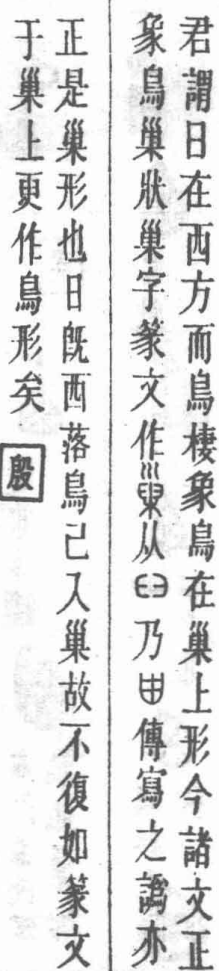 君謂日在西方而鳥棲象鳥在巢上形今諸文正
象鳥巢狀巢字篆文作𢁉从𦥓乃甶傳寫之譌亦
正是巢形也日旣西落鳥己入巢故不復如篆文
于巢上更作鳥形矣
殷